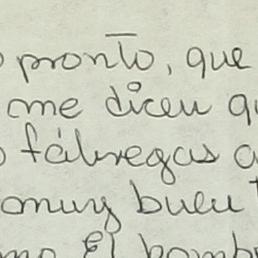 pronto, que
me dicen qu
fábregas a
muy buen
El hombr